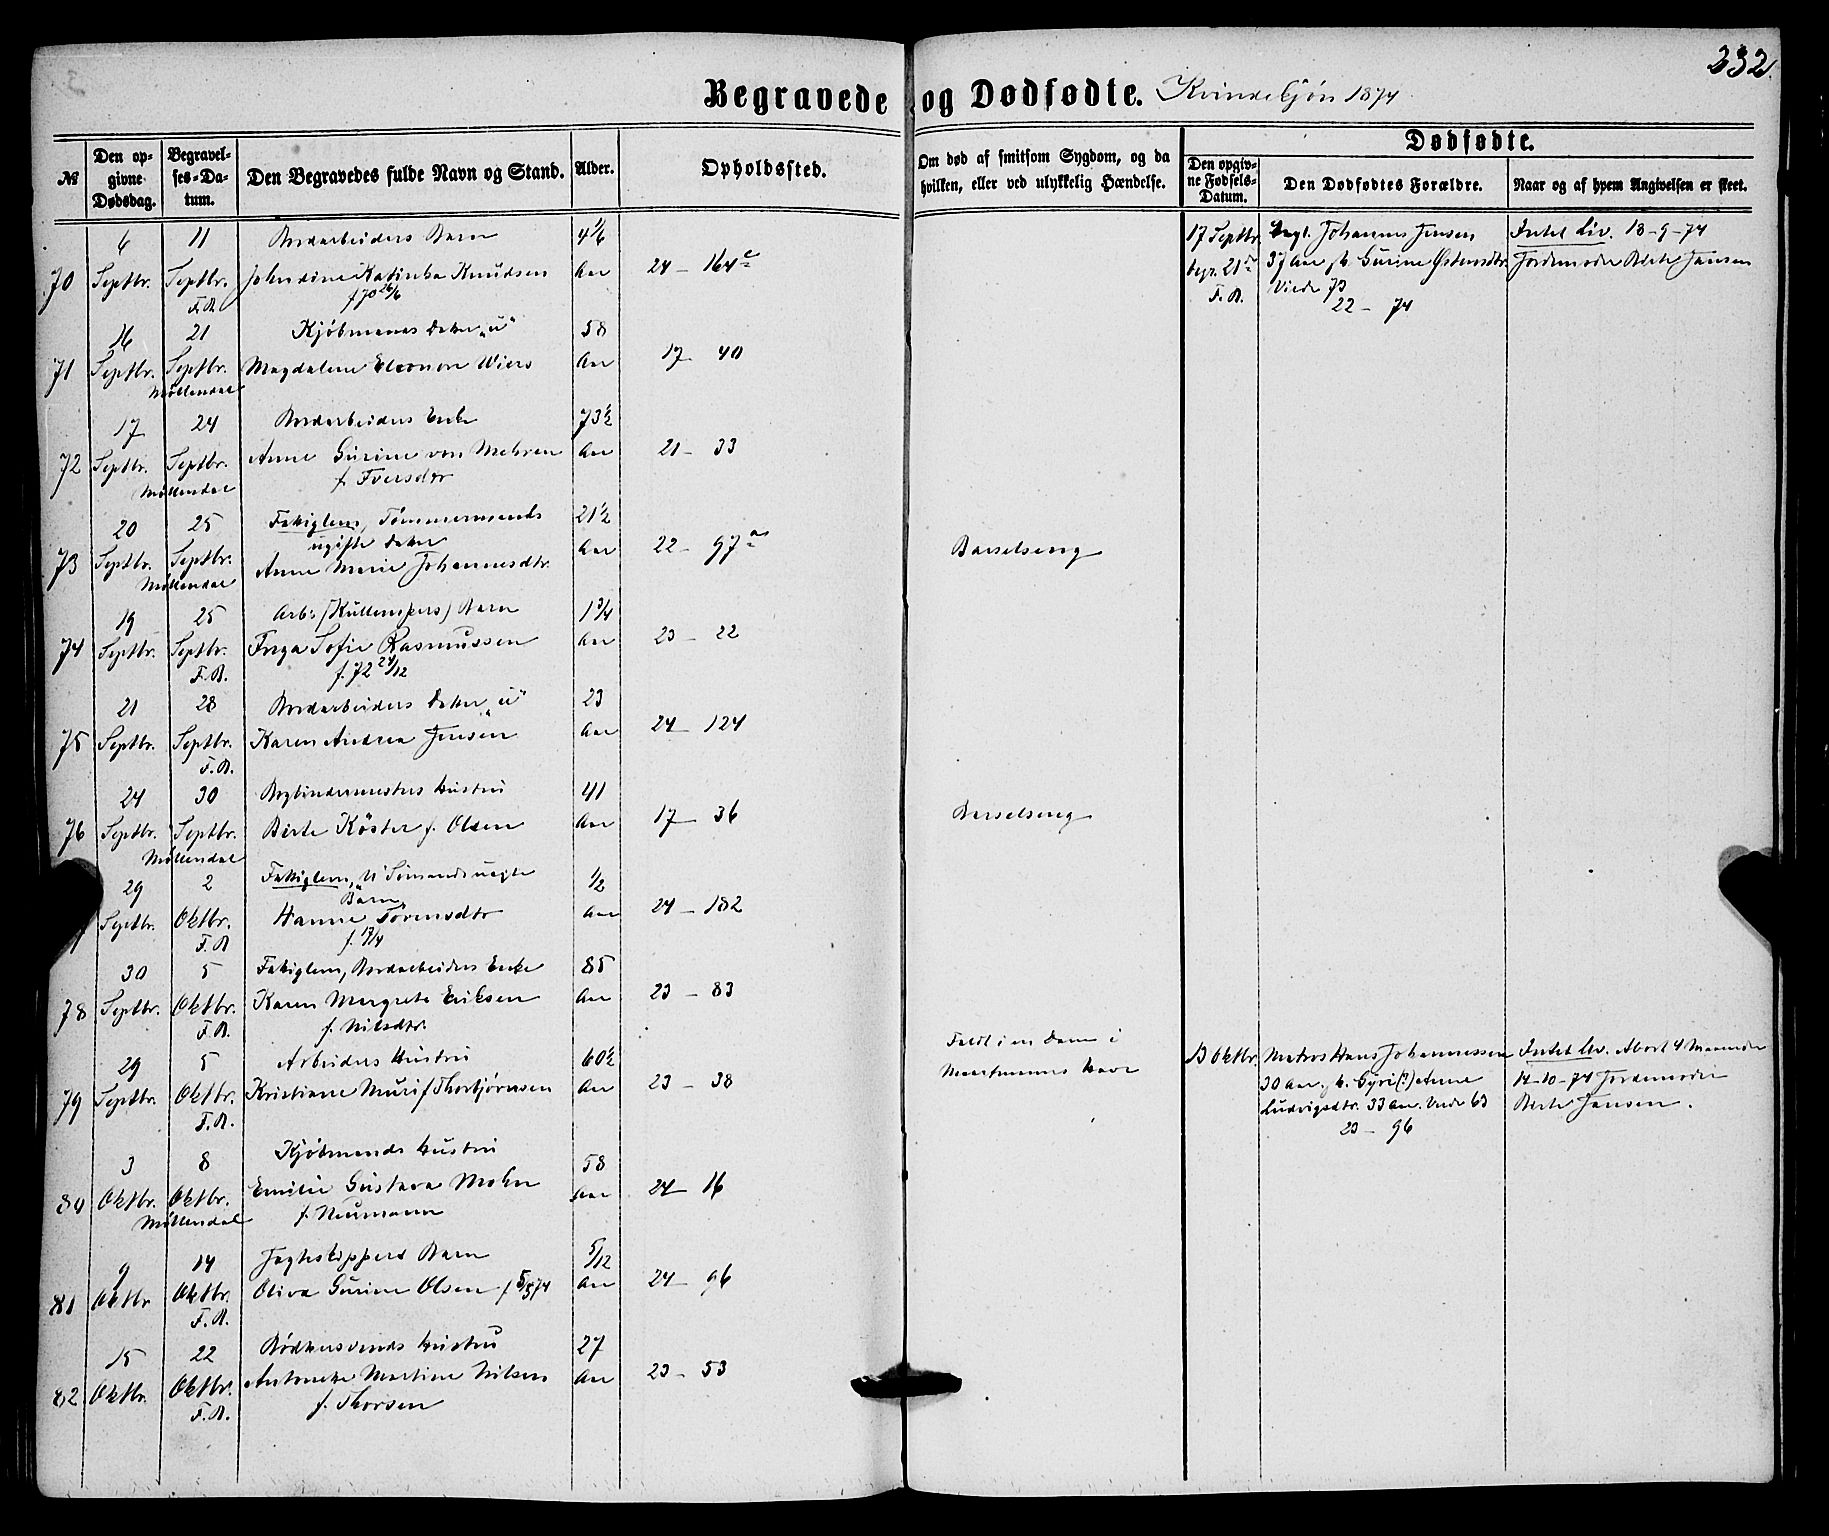 232.
Begravede og Dødfødte. Kvindekjøn 1874
№
Den opgivne Dødsdag.
Begravelses-Datum.
Den Begravedes fulde Navn og Stand.
Alder.
Opholdssted.
Om død af smitsom Sygdom, og da hvilken, eller ved ulykkelig Hændelse.
Dødfødte.
Den opgivne Fødsels-Datum.
Den Dødfødtes Forældre.
Naar og af hvem Angivelsen er skeet.
6 11 Bordarbeiders Barn 4 1/6
70 Septbr. Septbr. Johndine Katinka Knudsen Aar 24 - 164 c
F.A. f 70 26/6
17 Septbr. Johannes Jensen Intet Liv. 18-9-74
begr. 21de 37 Aar, h. Gurine Jordemoder Berte Jansen
F.A. Viede 73
22 - 74
16 21 Kjøbmands Datter "u" 58
71 Septbr. Septbr. Magdalene Eleonore Wiers Aar 17 - 40
Møllendal
17 24 Bordarbeiders Enke 73½
72 Septbr. Septbr. Anne Gurine von Mehren Aar 21 - 33
Møllendal f. Iversdtr
20 25 Fattiglem, Tømmermands 21½
ugifte Datter
73 Septbr. Septbr. Anne Marie Johannesdtr. Aar 22 - 97 a Barselseng
Møllendal
19 25 Arb: (Kullempers) Barn 1¾
74 Septbr. Septbr. Inga Sofie Rasmussen Aar 23 - 22
F.A. f. 72 24/12
21 28 Bordarbeiders Datter "u" 23
75 Septbr. Septbr. Karen Andrea Jensen Aar 24 - 124
F.A.
24 30 Bogbindermesters Hustru 41
76 Septbr. Septbr. Berte Köster f. Olsen Aar 17 - 36 Barselseng
Møllendal
29 2 Fattiglem, U Sømands uægte ½
Barn
Septbr. Oktbr. Hanne Sørensdtr Aar 24 - 182
F.A f. 17/4
30 5 Fattiglem, Bordarbeiders Enke 85
78 Septbr. Oktbr. Karen Margrete Eriksen Aar 23 - 83
F.A. f. Nilsdtr.
29 5 Arbeiders Hustru 60½ Faldt i en Dam i
79 Septbr. Oktbr. Kristiane Muri f Thorbjørnsen Aar 23 - 38 Have
F.A.
13 Oktbr. Matros Hans Johannessen Intet Liv. Abort 4 Maaneder
30 Aar, h. Gyri(?) Anne 14-10-74 Jordemoder
Ludvigsdtr. 33 Aar. Viede 63 Berte Jansen.
23 - 96
3 8 Kjøbmands Hustru 58
80 Oktbr. Oktbr. Emilie Gustava Mohn Aar 24 - 16
Møllendal f. Neumann
9 14 Jagtskippers Barn 5/12
81 Oktbr Oktbr. Oliva Gurine Olsen f 5/5 74 Aar 24 - 96
F.A.
15 22 Bødkersvends Hustru 27
82 Oktbr. Oktbr. Antonette Martine Nilsen Aar 23 - 53
F.A. f. Thorsen